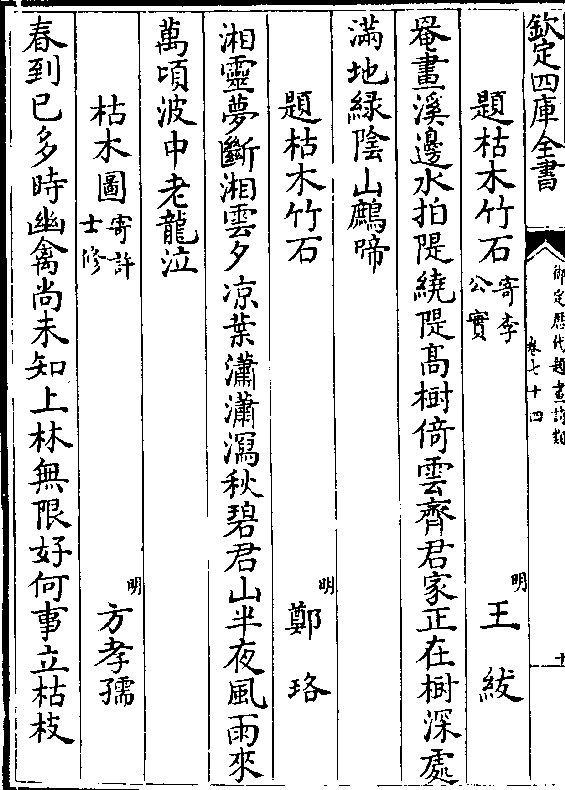 欽定四庫全書
御定歴代題畫詩類
卷七十四
題枯木竹石寄李公實 明 王紱
罨畫溪邊水拍隄繞隄髙樹倚雲齊君家正在樹深處
滿地緑陰山鷓啼
題枯木竹石 明 鄭珞
湘靈夢斷湘雲夕凉葉瀟瀟瀉秋碧君山半夜風雨來
萬頃波中老龍泣
枯木圖寄許士修 明 方孝孺
春到已多時幽禽尚未知上林無限好何事立枯枝